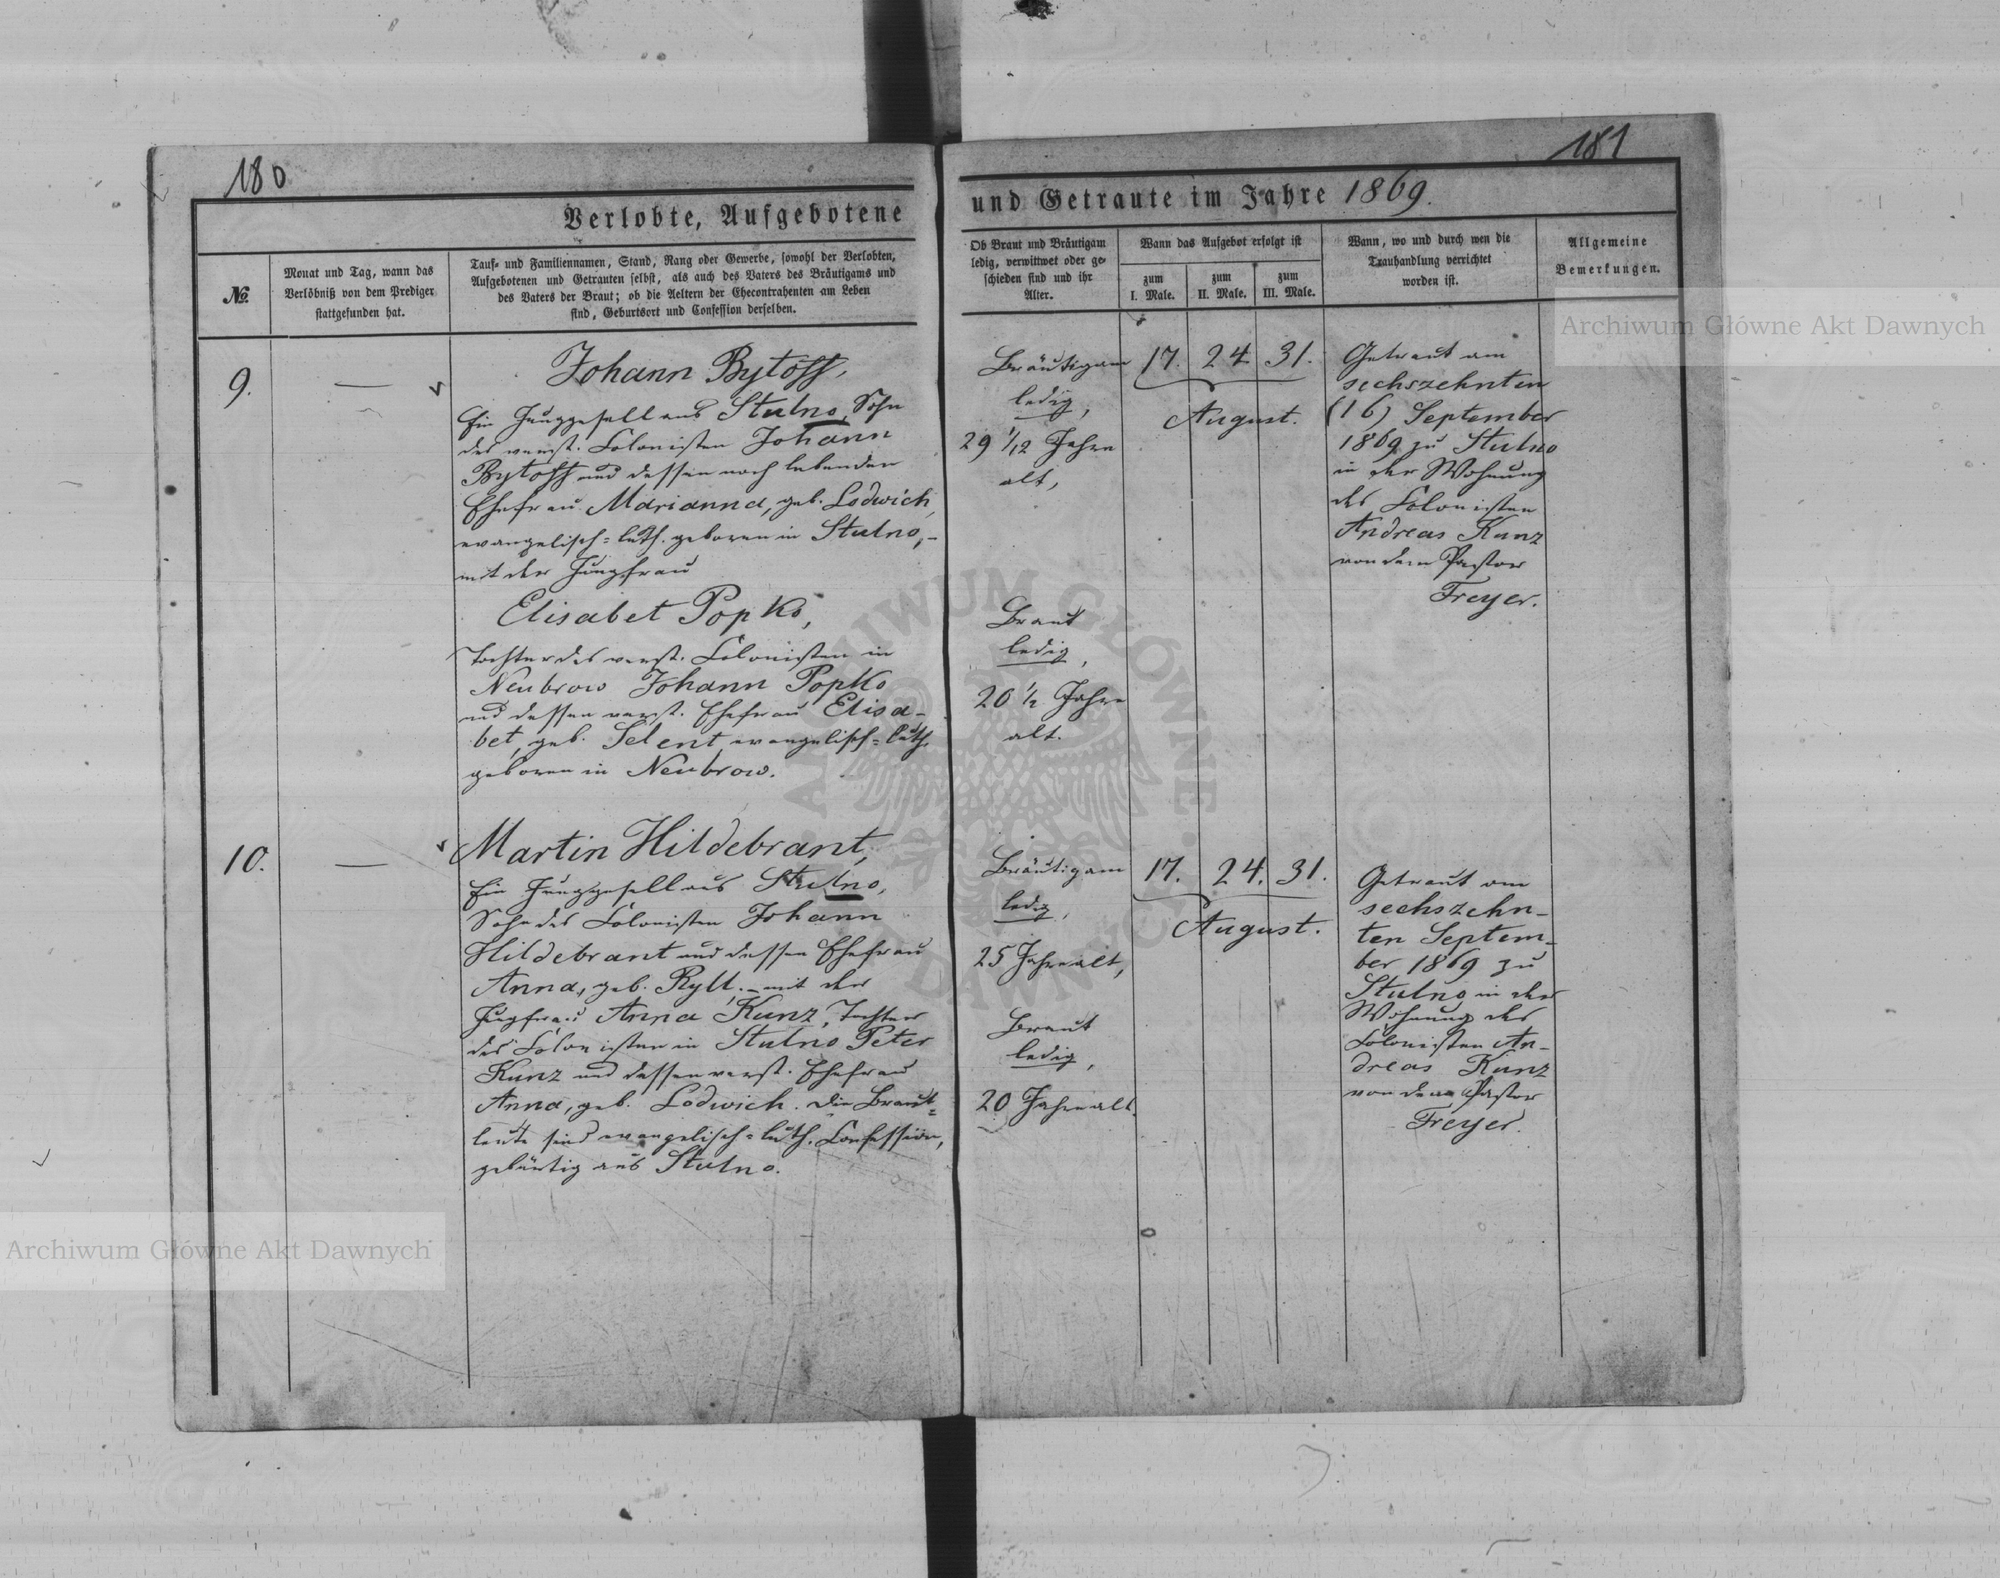 180
181
Verlobte, Aufgebotene
und Getraute im Jahre 1869.
№
Monat und Tag, wann das
Verlöbniß von dem Prediger
stattgefunden hat.
Tauf- und Familiennamen, Stand, Rang oder Gewerbe, sowohl der Verlobten,
Aufgebotenen und Getrauten selbst, als auch des Vaters des Bräutigams und
des Vaters der Braut; ob die Aeltern der Ehecontrahenten am Leben
sind, Geburtsort und Confession derselben.
Ob Braut und Bräutigam
ledig, verwittwet oder ge-
schieden sind und ihr
Alter.
Wann das Aufgebot erfolgt ist
zum
I. Male.
zum
II. Male.
zum
III. Male.
Wann, wo und durch wen die
Trauhandlung verrichtet
worden ist.
Allgemeine
Bemerkungen.
9.
Johann Bytoff,
Ein Junggesell aus Stulno, Sohn
des verst. Colonisten Johann
Bytoff und dessen noch lebenden
Ehefrau Marianna, geb. Lodwich,
evangelisch-luth. geboren in Stulno,-
mit der Jungfrau
Elisabet Popko,
Tochter des verst. Colonisten in
Neubrow Johann Popko
und dessen verst. Ehefrau Elisa-
bet, geb. Selent, evangelisch-luth.
geboren in Neubrow.
Bräutigam
ledig,
29 1/12 Jahre
alt,
Braut
ledig,
20 1/2 Jahre
alt.
17. 24 31.
August.
Getraut am
sechszehnten
(16) September
1869 zu Stulno
in der Wohnung
des Colonisten
Andreas Kunz
von dem Pastor
Freyer.
10.
Martin Hildebrant,
Ein Junggesell aus Stulno,
Sohn des Colonisten Johann
Hildebrant und dessen Ehefrau
Anna, geb. Ryll. - mit der
Jungfrau Anna Kunz, Tochter
des Colonisten in Stulno Peter
Kunz und dessen verst. Ehefrau
Anna, geb. Lodwich. Die Braut-
leute sind evangelisch-luth. Confession,
gebürtig aus Stulno.
Bräutigam
ledig,
25 Jahre alt,
Braut
ledig,
20 Jahre alt.
17. 24. 31.
August.
Getraut am
sechszehn-
ten Septem-
ber 1869 zu
Stulno in der
Wohnung des
Colonisten An-
dreas Kunz
von dem Pastor
Freyer.
Archiwum Główne Akt Dawnych
Archiwum Główne Akt Dawnych
ARCHIWUM GŁÓWNE AKT DAWNYCH